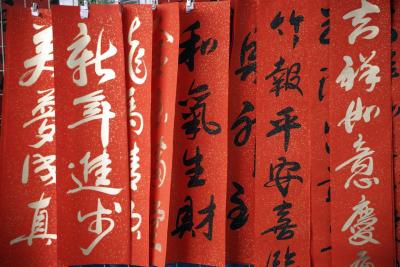 吉祥如意慶
竹報平安喜臨
和氣生財
龍馬精
新年進步
美夢成真